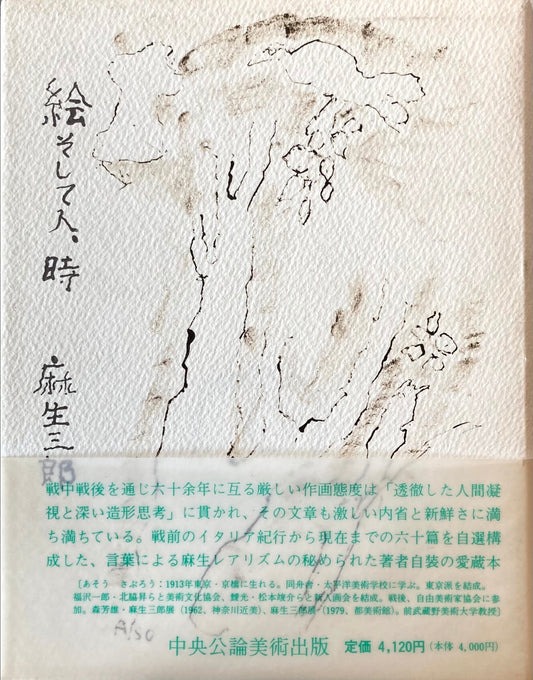 絵そして人、時
麻生三郎
戦中戦後を通じ六十余年に亙る厳しい作画態度は「透徹した人間凝
視と深い造形思考」に貫かれ、その文章も激しい内省と新鮮さに満
ち満ちている。戦前のイタリア紀行から現在までの六十篇を自選構
成した、言葉による麻生レアリズムの秘められた著者自装の愛蔵本
[あそう さぶろう：1913年東京・京橋に生れる。同舟舎・太平洋美術学校に学ぶ。東京派を結成。
福沢一郎・北脇昇らと美術文化協会、靉光・松本竣介らと新人画会を結成。戦後、自由美術家協会に参
加。森芳雄・麻生三郎展（1962、神奈川近美）、麻生三郎展（1979、都美術館）。前武蔵野美術大学教授]
中央公論美術出版 定価 4,120円（本体 4,000円）